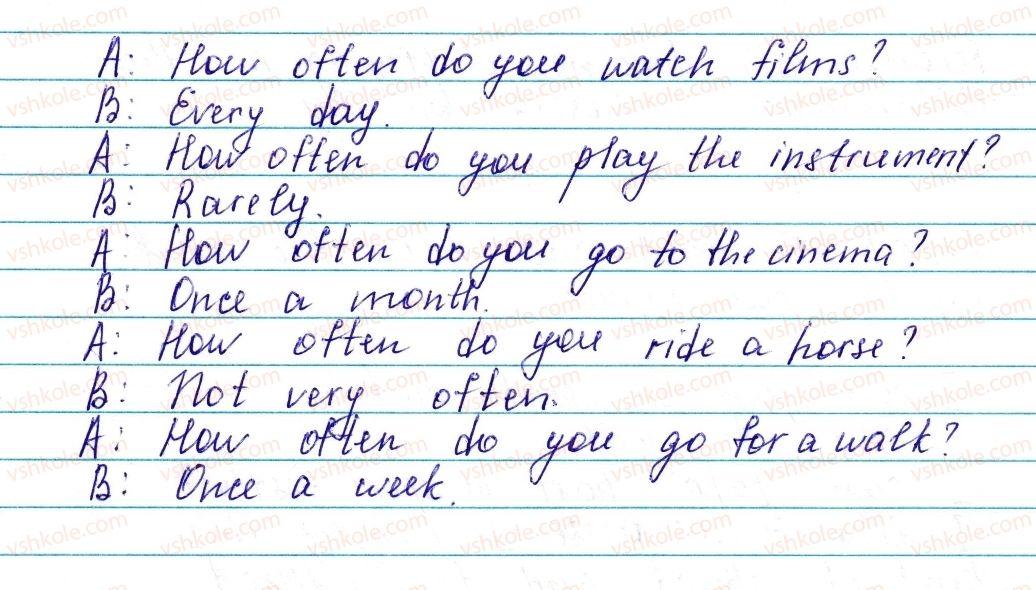 A: How often do you watch films?
B: Every day.
A: How often do you play the instrument?
B: Rarely.
A: How often do you go to the cinema?
B: Once a month.
A: How often do you ride a horse?
B: Not very often.
A: How often do you go for a walk?
B: Once a week.